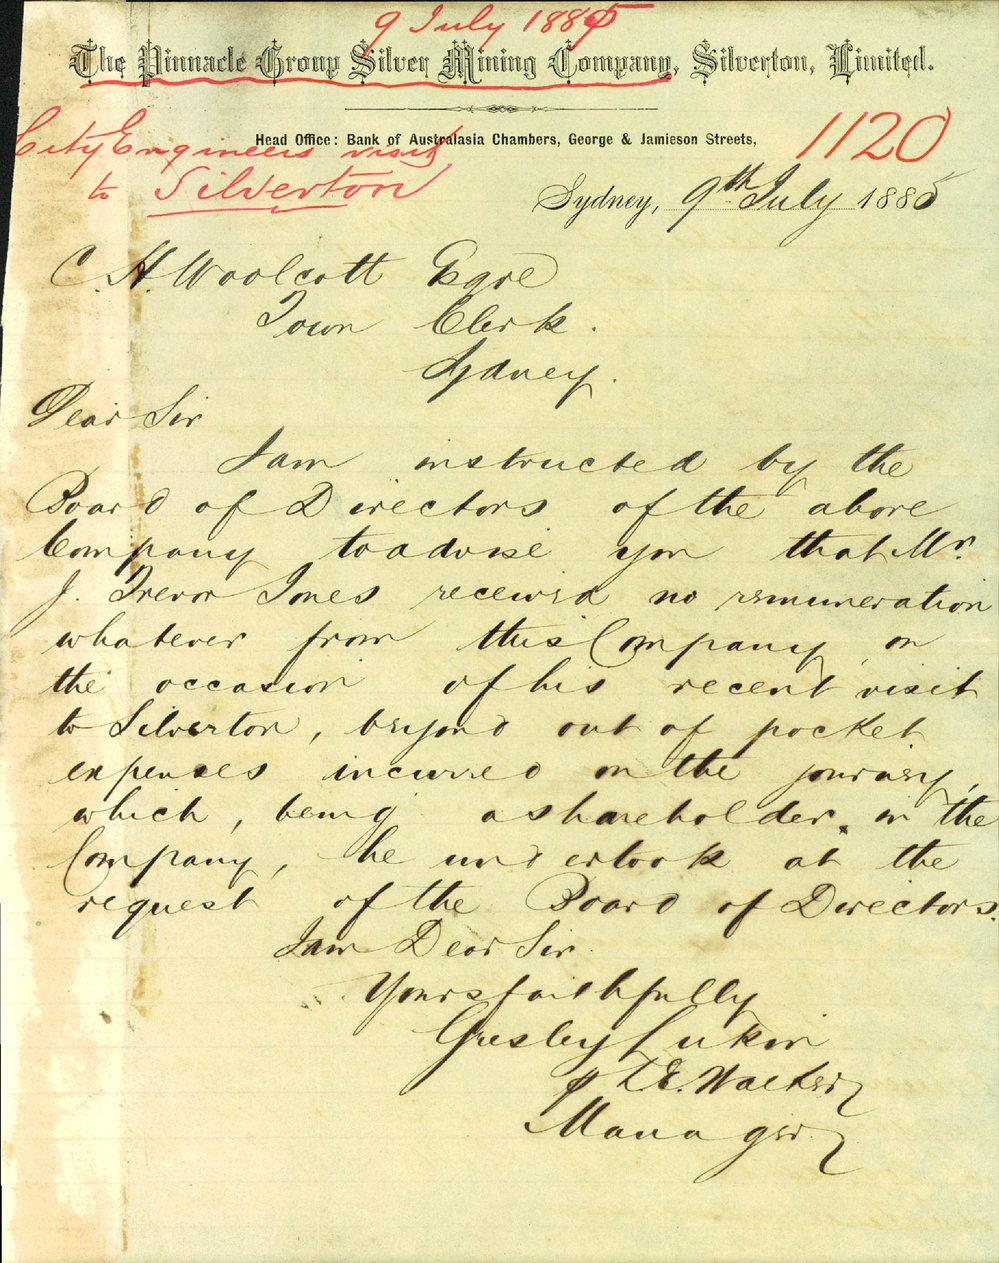 9 July 1885
The Pinnacle Group Silver Mining Company, Silverton, Limited.
Head Office: Bank of Australasia Chambers, George & Jamieson Streets,
City Engineers visit
to Silverton
1120
Sydney, 9th July 1885
C. H. Woolcott Esqre
Town Clerk.
Sydney.
Dear Sir
I am instructed by the
Board of Directors of the above
Company to advise you that Mr.
J. Trevor Jones received no remuneration
whatever from this Company, on
the occasion of his recent visit
to Silverton, beyond out of pocket
expenses incurred on the journey,
which, being a shareholder, in the
Company, he undertook at the
request of the Board of Directors.
I am Dear Sir.
Yours faithfully
Gresley Lukin
p L.E. Walker
Manager